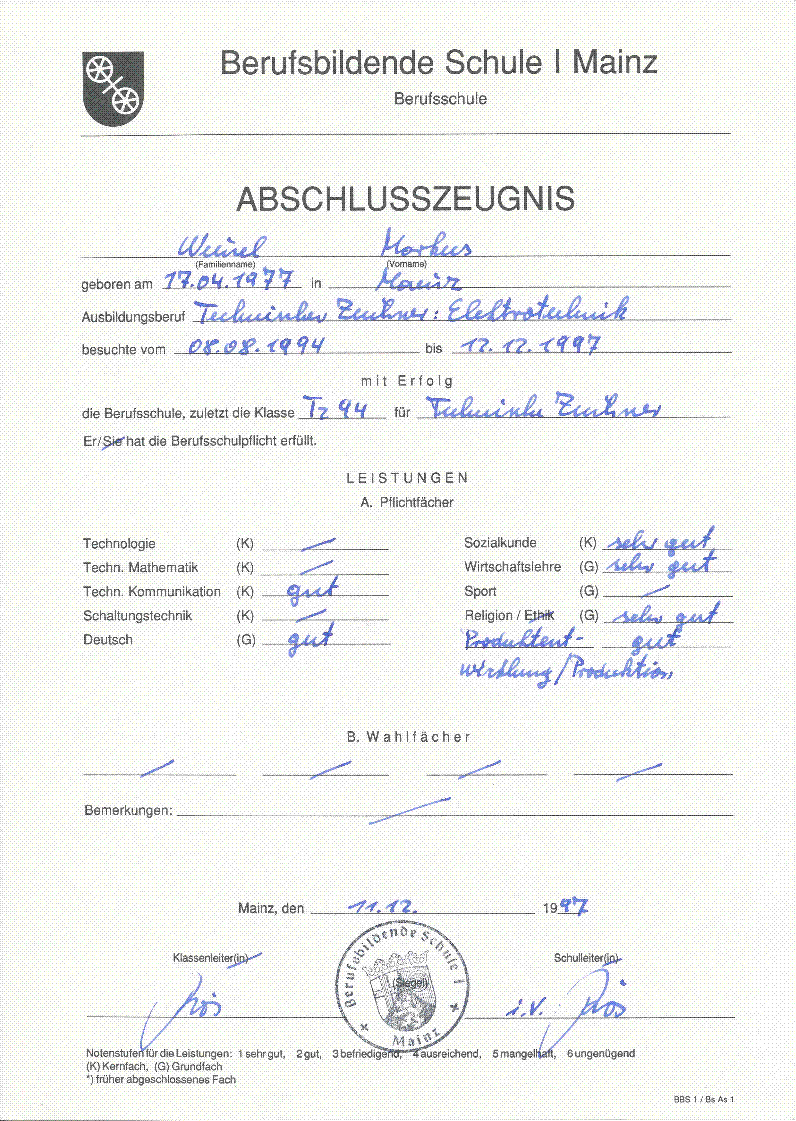 Berufsbildende Schule I Mainz
Berufsschule
ABSCHLUSSZEUGNIS
Markus
(Familienname) (Vorname)
geboren am 17.04.1977 in Mainz
Ausbildungsberuf Technischer Zeichner: Elektrotechnik
besuchte vom 08.08.1994 bis 12.12.1997
mit Erfolg
die Berufsschule, zuletzt die Klasse Tz 94 für Technischer Zeichner
Er/Sie hat die Berufsschulpflicht erfüllt.
LEISTUNGEN
A. Pflichtfächer
Technologie (K) — Sozialkunde (K) sehr gut
Techn. Mathematik (K) — Wirtschaftslehre (G) sehr gut
Techn. Kommunikation (K) gut Sport (G) —
Schaltungstechnik (K) — Religion / Ethik (G) sehr gut
Deutsch (G) gut Produktent- gut
wicklung/Produktion
B. Wahlfächer
Bemerkungen:
Mainz, den 11.12. 1997
Klassenleiter(in) Schulleiter(in)
Berufsbildende Schule I
(Siegel)
Mainz
i.V.
Notenstufen für die Leistungen: 1 sehr gut, 2 gut, 3 befriedigend, 4 ausreichend, 5 mangelhaft, 6 ungenügend
(K) Kernfach, (G) Grundfach
*) früher abgeschlossenes Fach
BBS 1 / Bs As 1